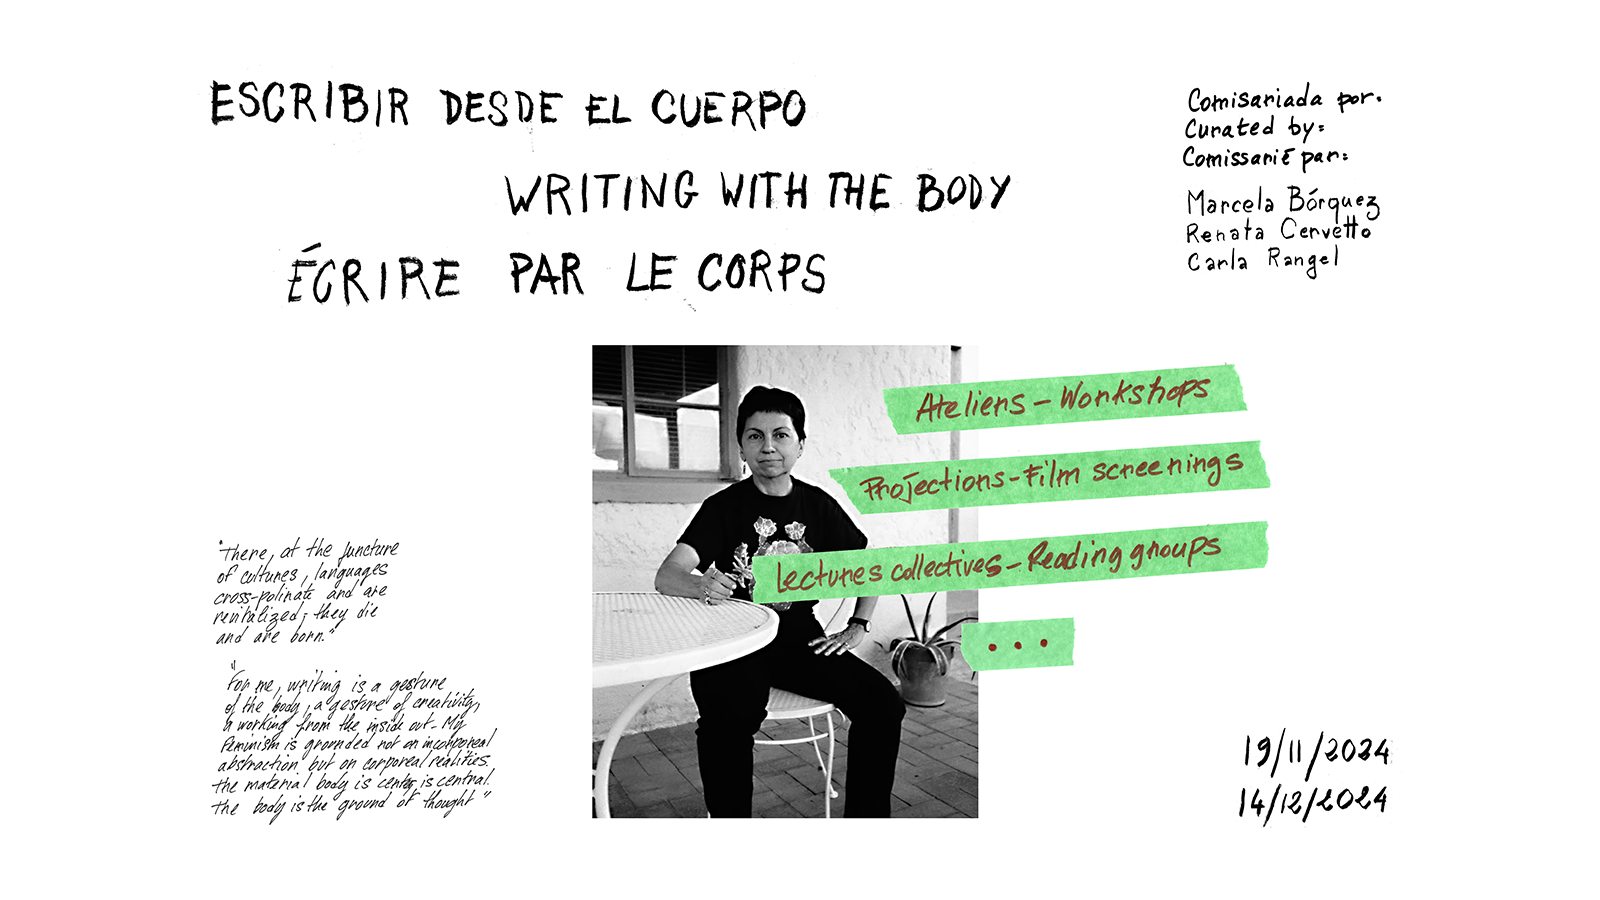 ESCRIBIR DESDE EL CUERPO
WRITING WITH THE BODY
ÉCRIRE PAR LE CORPS
Comisariada por:
Curated by:
Comissarié par:
Marcela Bórquez
Renata Cervetto
Carla Rangel
Ateliers – Workshops
Projections – Film screenings
Lectures collectives – Reading groups
...
"There, at the juncture
of cultures, languages
cross-polinate and are
revitalized; they die
and are born."
"For me, writing is a gesture
of the body, a gesture of creativity,
a working from the inside out. My
feminism is grounded not on incorporeal
abstraction but on corporeal realities.
the material body is center, is central.
the body is the ground of thought"
19/11/2024
14/12/2024